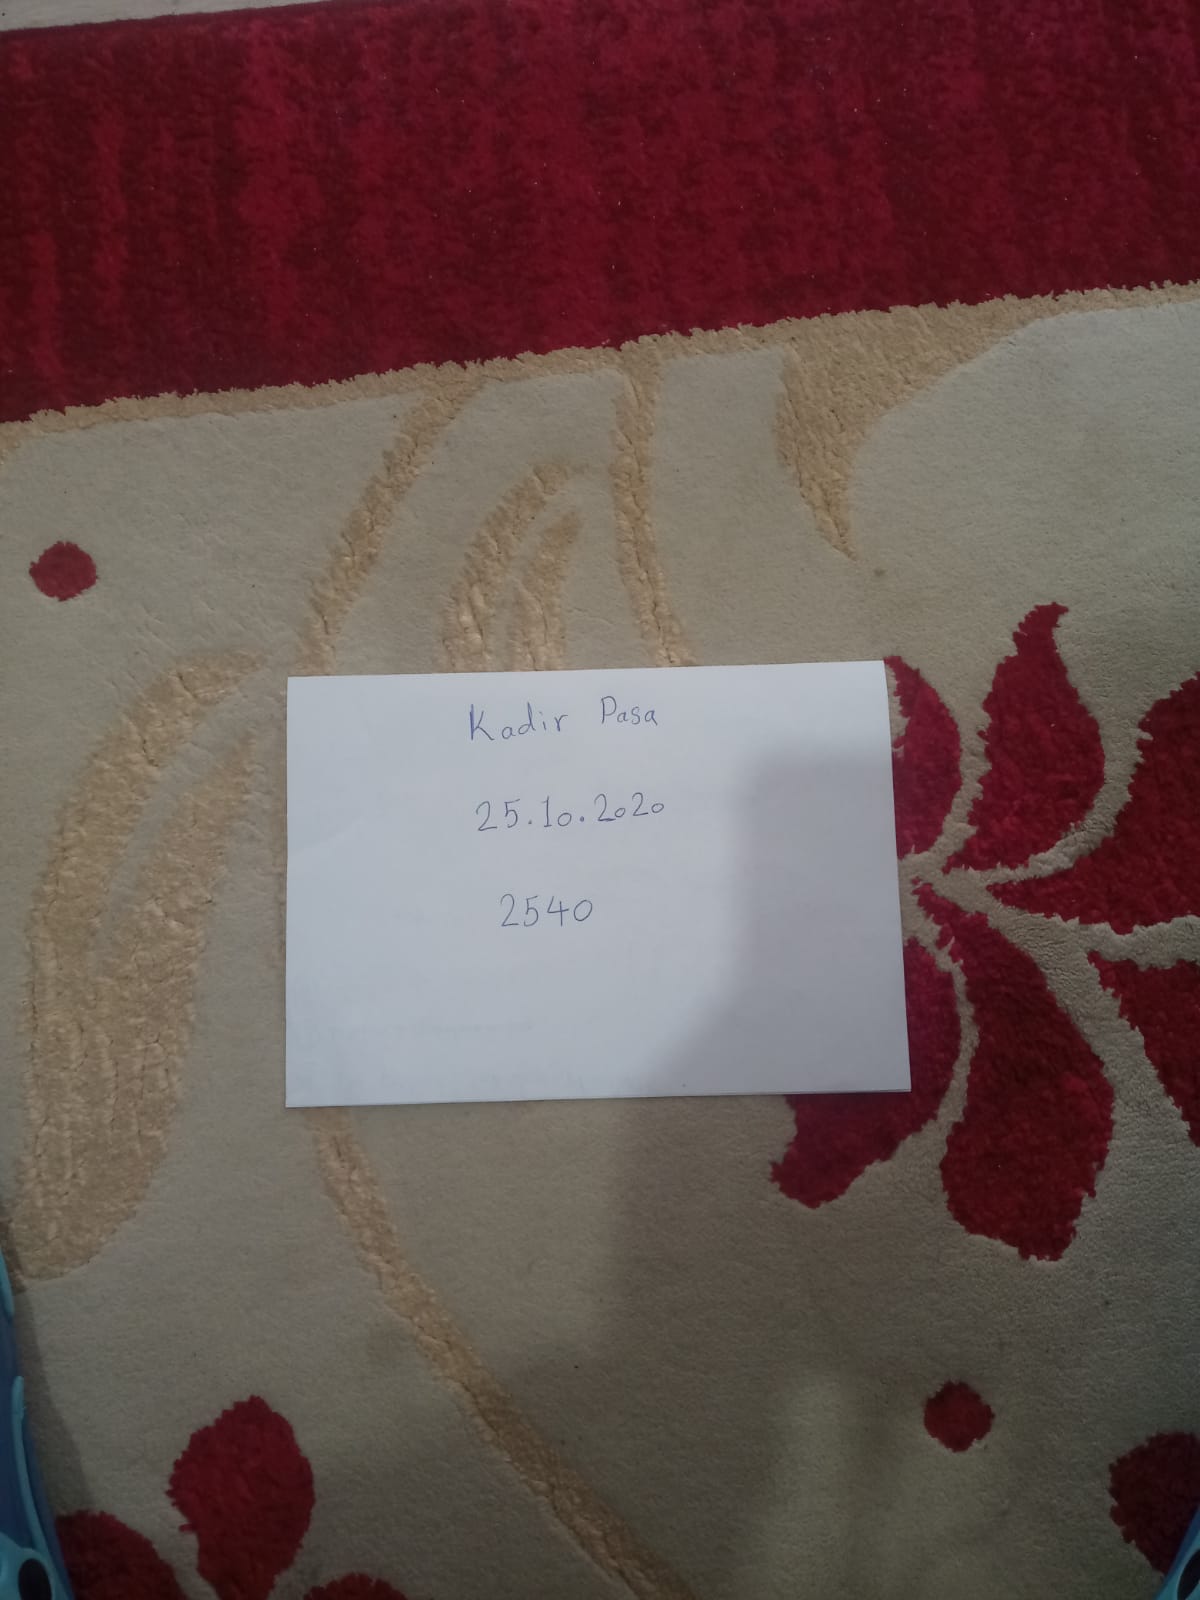 Kadir Pasa
25.10.2020
2540